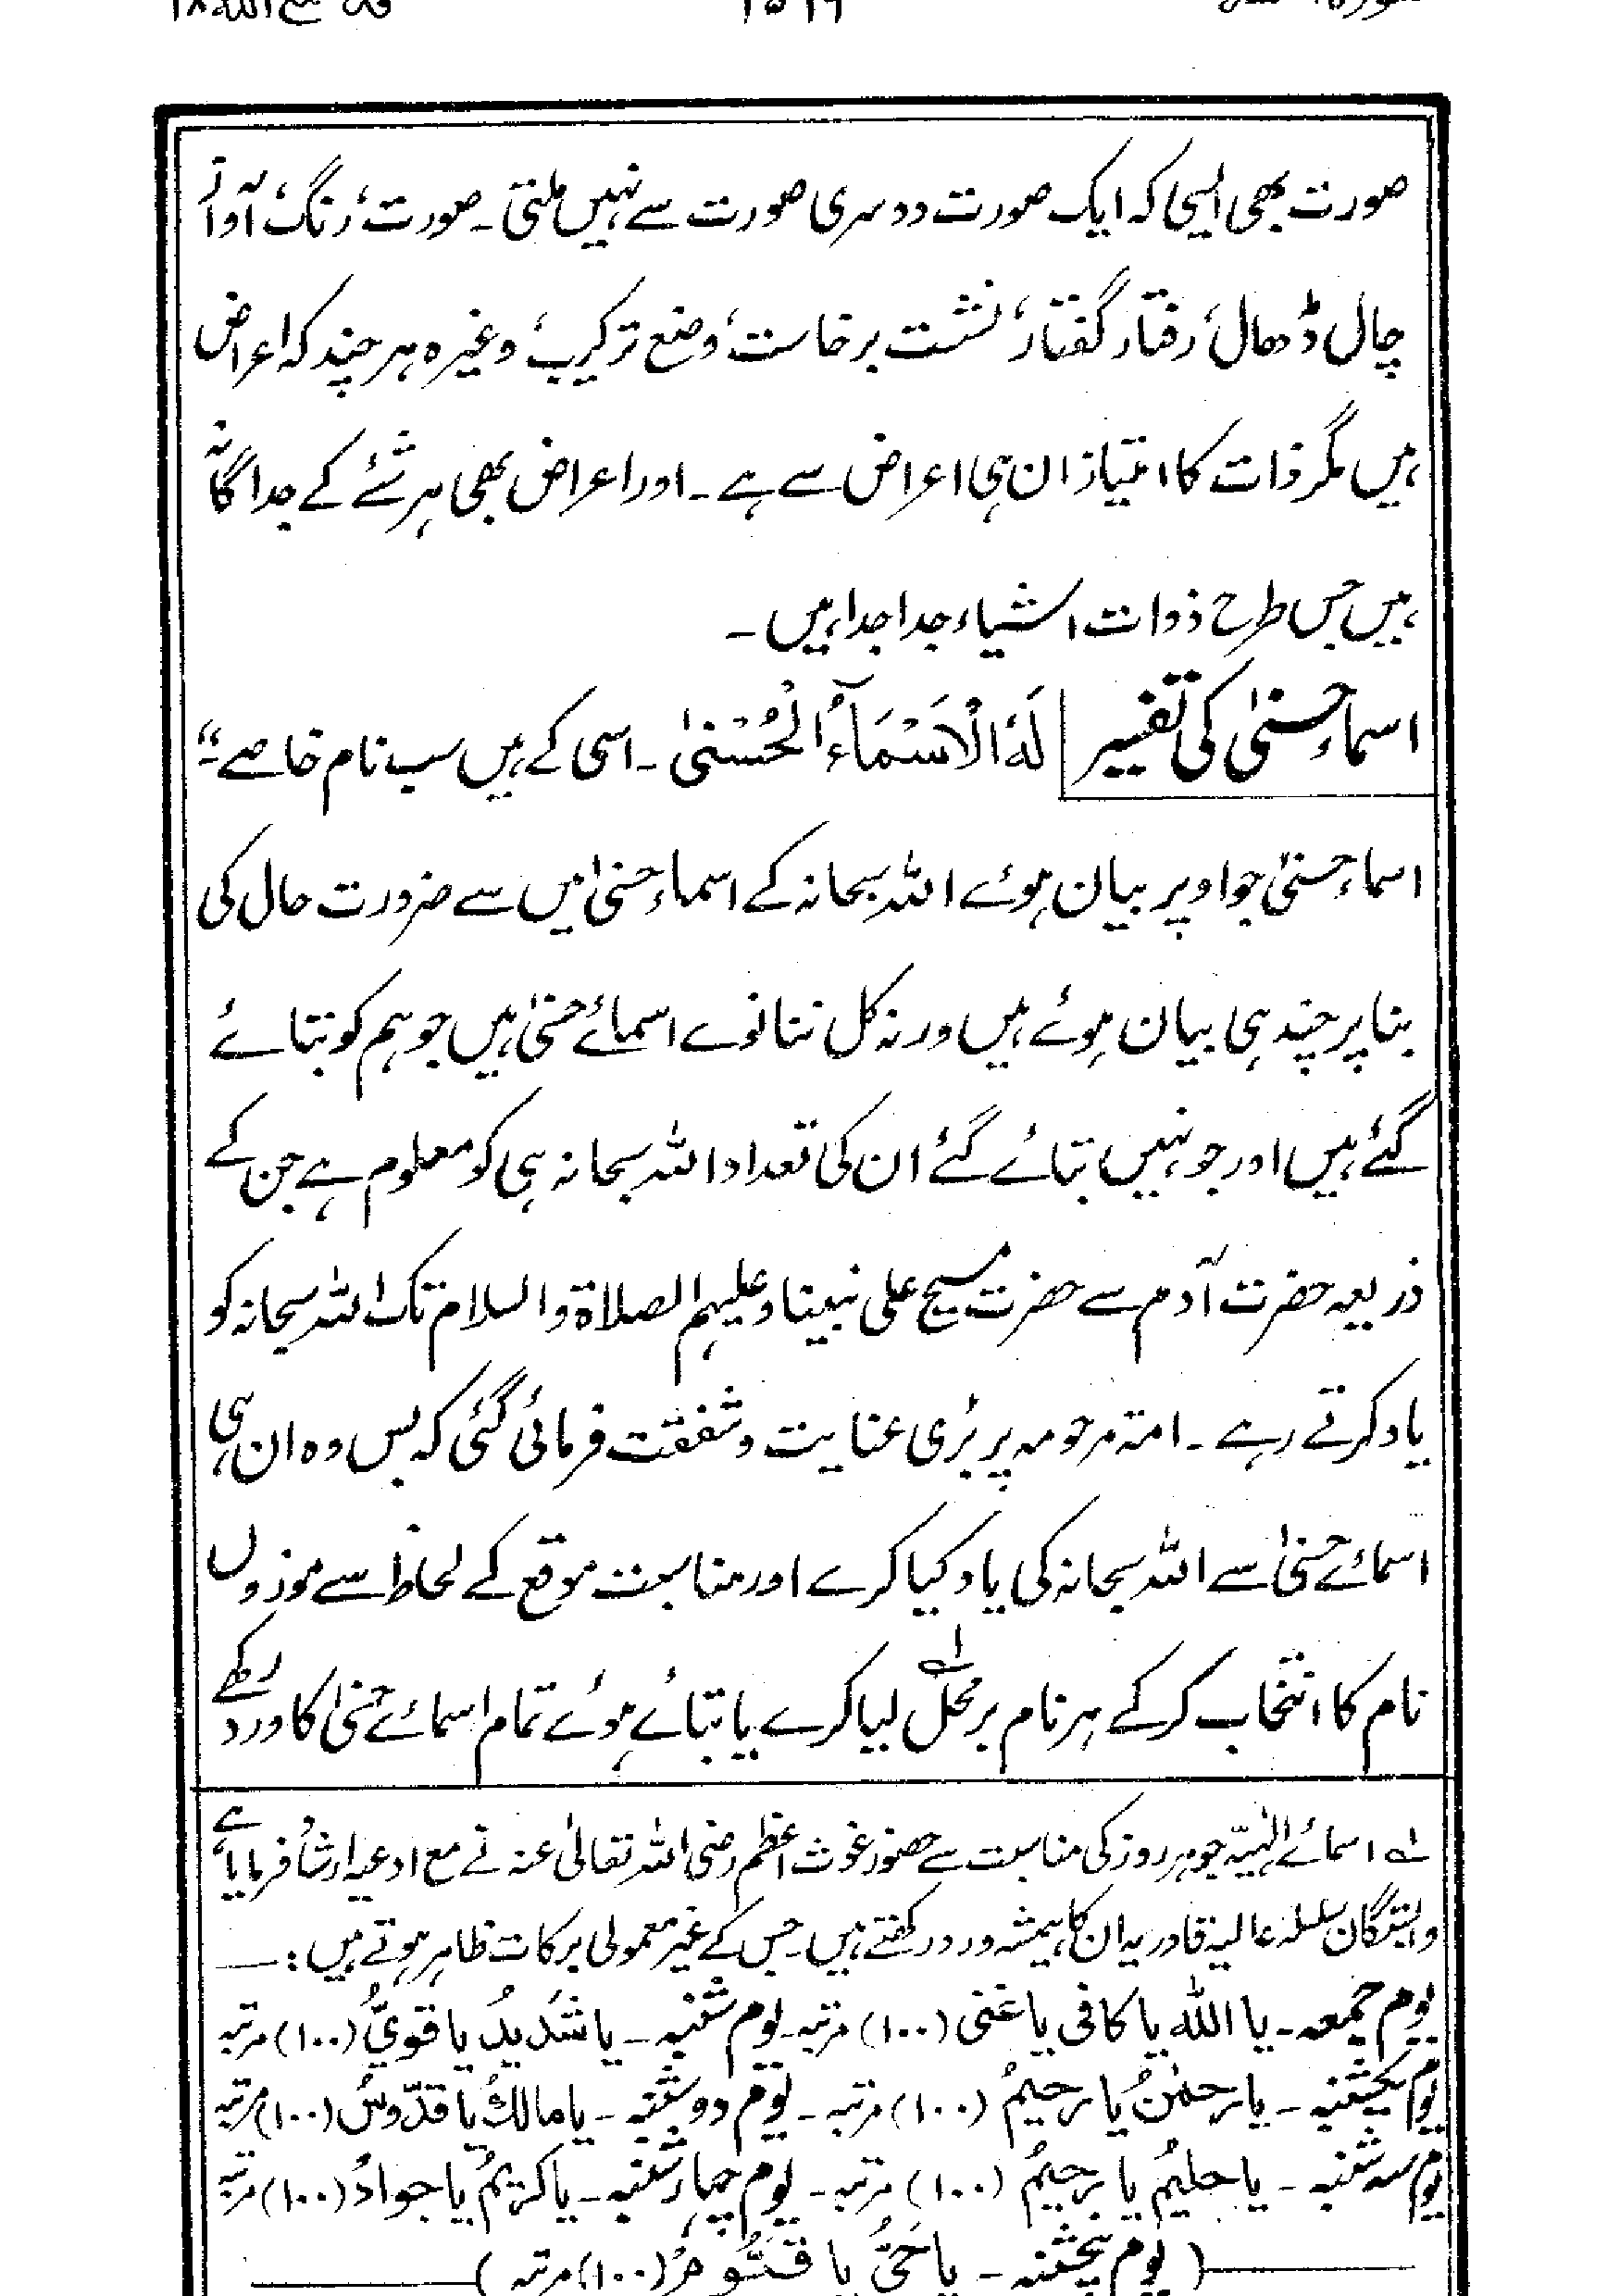 ۱۵۱۶
صورت بھی ایسی کہ ایک صورت دوسری صورت سے نہیں ملتی۔ صورت، رنگ، آواز
چال ڈھال، رفتار گفتار، نشست برخاست، وضع ترکیب، وغیرہ ہر چند کہ اعراض
ہیں مگر ذات کا امتیاز ان ہی اعراض سے ہے۔ اور اعراض بھی ہر شئے کے جداگانہ
ہیں جس طرح ذوات اشیاء جدا جدا ہیں۔
اسماء حسنیٰ کی تفسیر لَهُ الْاَسْمَآءُ الْحُسْنیٰ۔ اسی کے ہیں سب نام خاصے۔"
اسماء حسنیٰ جو اوپر بیان ہوئے اللہ سبحانہ کے اسماء حسنیٰ میں سے ضرورت حال کی
بنا پر چند ہی بیان ہوئے ہیں ورنہ کل ننانوے اسمائے حسنیٰ ہیں جو ہم کو بتائے
گئے ہیں اور جو نہیں بتائے گئے ان کی تعداد اللہ سبحانہ ہی کو معلوم ہے جن کے
ذریعہ حضرت آدم سے حضرت مسیح علی نبینا وعلیہم الصلاۃ والسلام تک اللہ سبحانہ کو
یاد کرتے رہے۔ امتہ مرحومہ پر بڑی عنایت و شفقت فرمائی گئی کہ بس وہ ان ہی
اسمائے حسنیٰ سے اللہ سبحانہ کی یاد کیا کرے اور مناسبت موقع کے لحاظ سے موزوں
نام کا انتخاب کرکے ہر نام برمحل لے لیا کرے یا بتائے ہوئے تمام اسمائے حسنیٰ کا ورد رکھے
لے اسمائے الٰہیہ جو ہر روز کی مناسبت سے حضور غوث اعظم رضی اللہ تعالیٰ عنہ نے مع ادعیہ ارشاد فرمایا ہے
وابستگان سلسلہ عالیہ قادریہ ان کا ہمیشہ ورد رکھتے ہیں۔ جس کے غیر معمولی برکات ظاہر ہوتے ہیں:۔
یوم جمعہ۔ یا اللہ یا کافی یا غنی (۱۰۰) مرتبہ۔ یوم شنبہ۔ یا شَدِیدُ یا قَوِیُّ (۱۰۰) مرتبہ
یوم یکشنبہ۔ یا رحمٰنُ یا رحیمُ (۱۰۰) مرتبہ۔ یوم دوشنبہ۔ یا مالكُ یا قدّوسُ (۱۰۰) مرتبہ
یوم سہ شنبہ۔ یا حلیمُ یا رحیمُ (۱۰۰) مرتبہ۔ یوم چہارشنبہ۔ یا کریمُ یا جوادُ (۱۰۰) مرتبہ
(یوم پنجشنبہ۔ یا حَیُّ یا قَیُّومُ (۱۰۰) مرتبہ)